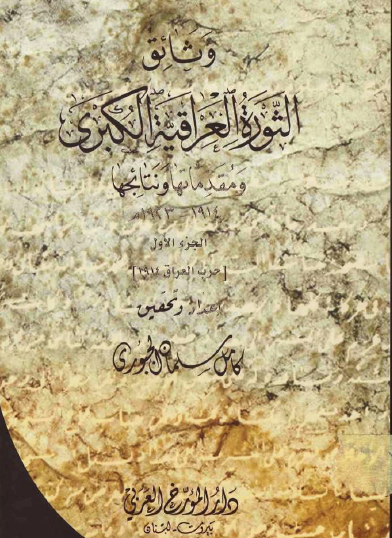 وثائق
الثورة العراقية الكبرى
ومقدماتها ونتائجها
١٩١٤ - ١٩٢٣م
الجزء الأول
[حرب العراق ١٩١٤]
إعداد وتحقيق
كامل سلمان الجبوري
دار المؤرخ العربي
بيروت - لبنان